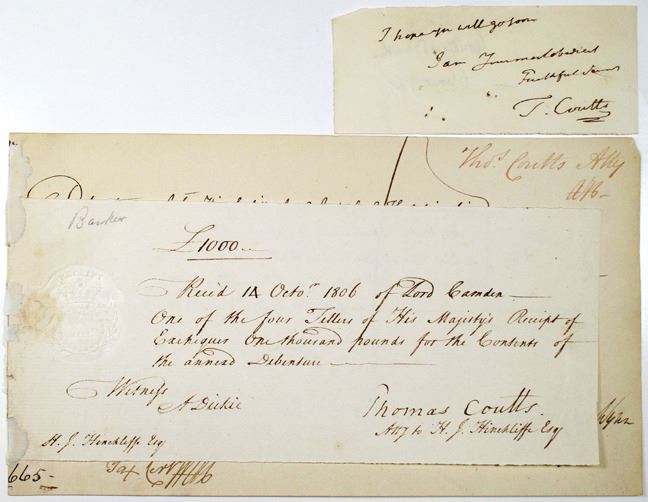 I hope you will go soon
I am Your most obedient
Faithful Serv
T. Coutts
Thos. Coutts Atty
Banker
£1000
Recd 14 Octor. 1806 of Lord Camden
One of the four Tellers of His Majesty's Receipt of
Exchequer One thousand pounds for the Contents of
the annexd Debenture
Witness
A Dickie
Thomas Coutts.
Atty to H. J. Hinchliffe Esq
H. J. Hinchliffe Esq
665-